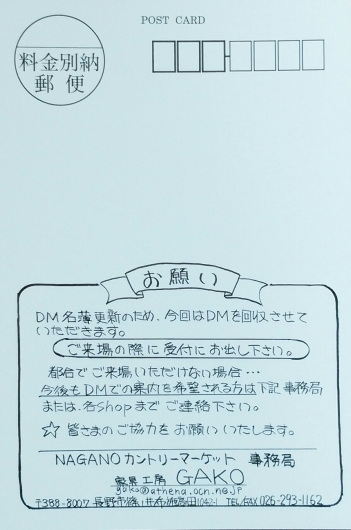 POST CARD
料金別納
郵便
お願い
DM名簿更新のため、今回はDMを回収させて
いただきます。
ご来場の際に受付にお出し下さい。
都合でご来場いただけない場合…
今後もDMでの案内を希望される方は下記事務局
または、各shopまでご連絡下さい。
☆ 皆さまのご協力をお願いいたします。
NAGANOカントリーマーケット 事務局
工房 GAKO
gako@athena.ocn.ne.jp
〒388-8007 長野市篠ノ井布施高田1042-1 TEL/FAX 026-293-1162